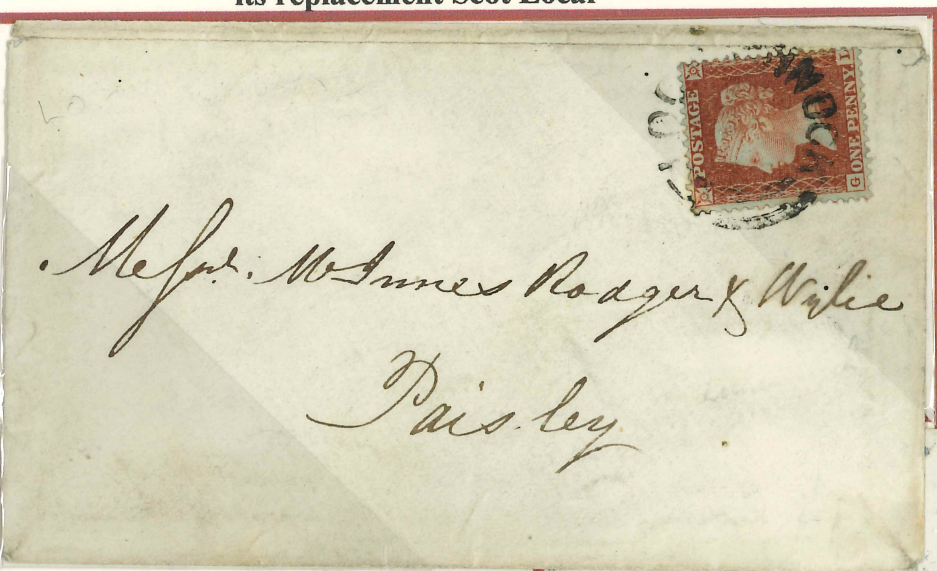 its replacement Scot Local
POSTAGE
ONE PENNY
G L
Messrs. McInnes Rodger & Wylie
Paisley